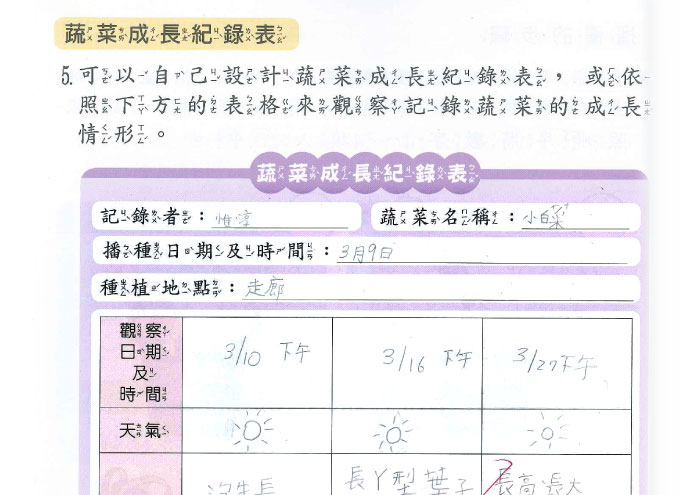 蔬菜成長紀錄表
5.可以自己設計蔬菜成長紀錄表，或依
照下方的表格來觀察記錄蔬菜的成長
情形。
蔬菜成長紀錄表
記錄者：惟淳 蔬菜名稱：小白菜
播種日期及時間：3月9日
種植地點：走廊
觀察
日期
及
時間
3/10 下午 3/16 下午 3/27下午
天氣
沒生長 長丫型葉子 長高、長大